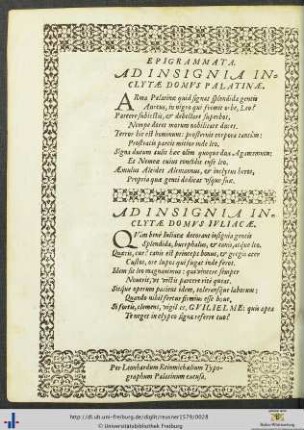 EPIGRAMMATA.
AD INSIGNIA IN-
CLYTÆ DOMVS PALATINÆ.
ARma Palatinæ quid signas splendida gentis
Aureus, in nigro qui fremis orbe, Leo?
Parcere subiectis, & debellare superbos,
Nempe docet morum nobilitate ducet.
Terror hic est hominum: prosternit corpora
Prostratis parcit mitior inde leo.
Signa ducum tulit hæc olim quoque dux Agamemnon:
Et Nemeæ cuius
Æmulus Alcides Alemannus, & inclytus heros,
Propria quæ genti dedicat suæ.
AD INSIGNIA IN-
CLYTÆ DOMVS IVLIACÆ.
QVàm benè Iuliacæ decorant insignia gentis
Splendida, bucephalus, & canis, atque leo.
Quæris, cur? canis est princeps bonus, & gregis acer
Custos, ut lupus qui fugat inde feros.
Idem sit leo magnanimus: qui vincere semper
Nouerit, & victis parcere rite queat.
Sitque operum patiens idem, toleransque laborum:
Quando nihil fortus segnius esse
Si fortis, clemens, vigil es, GVILIELME: quin apta
Te neget in clypeo signa referre tuo?
Per Leonhardum Reinmichælium Typo-
graphum Palatinum excusa.
http://dl.ub.uni-freiburg.de/diglit/reusner1579/0028
© Universitätsbibliothek Freiburg
Baden-Württemberg